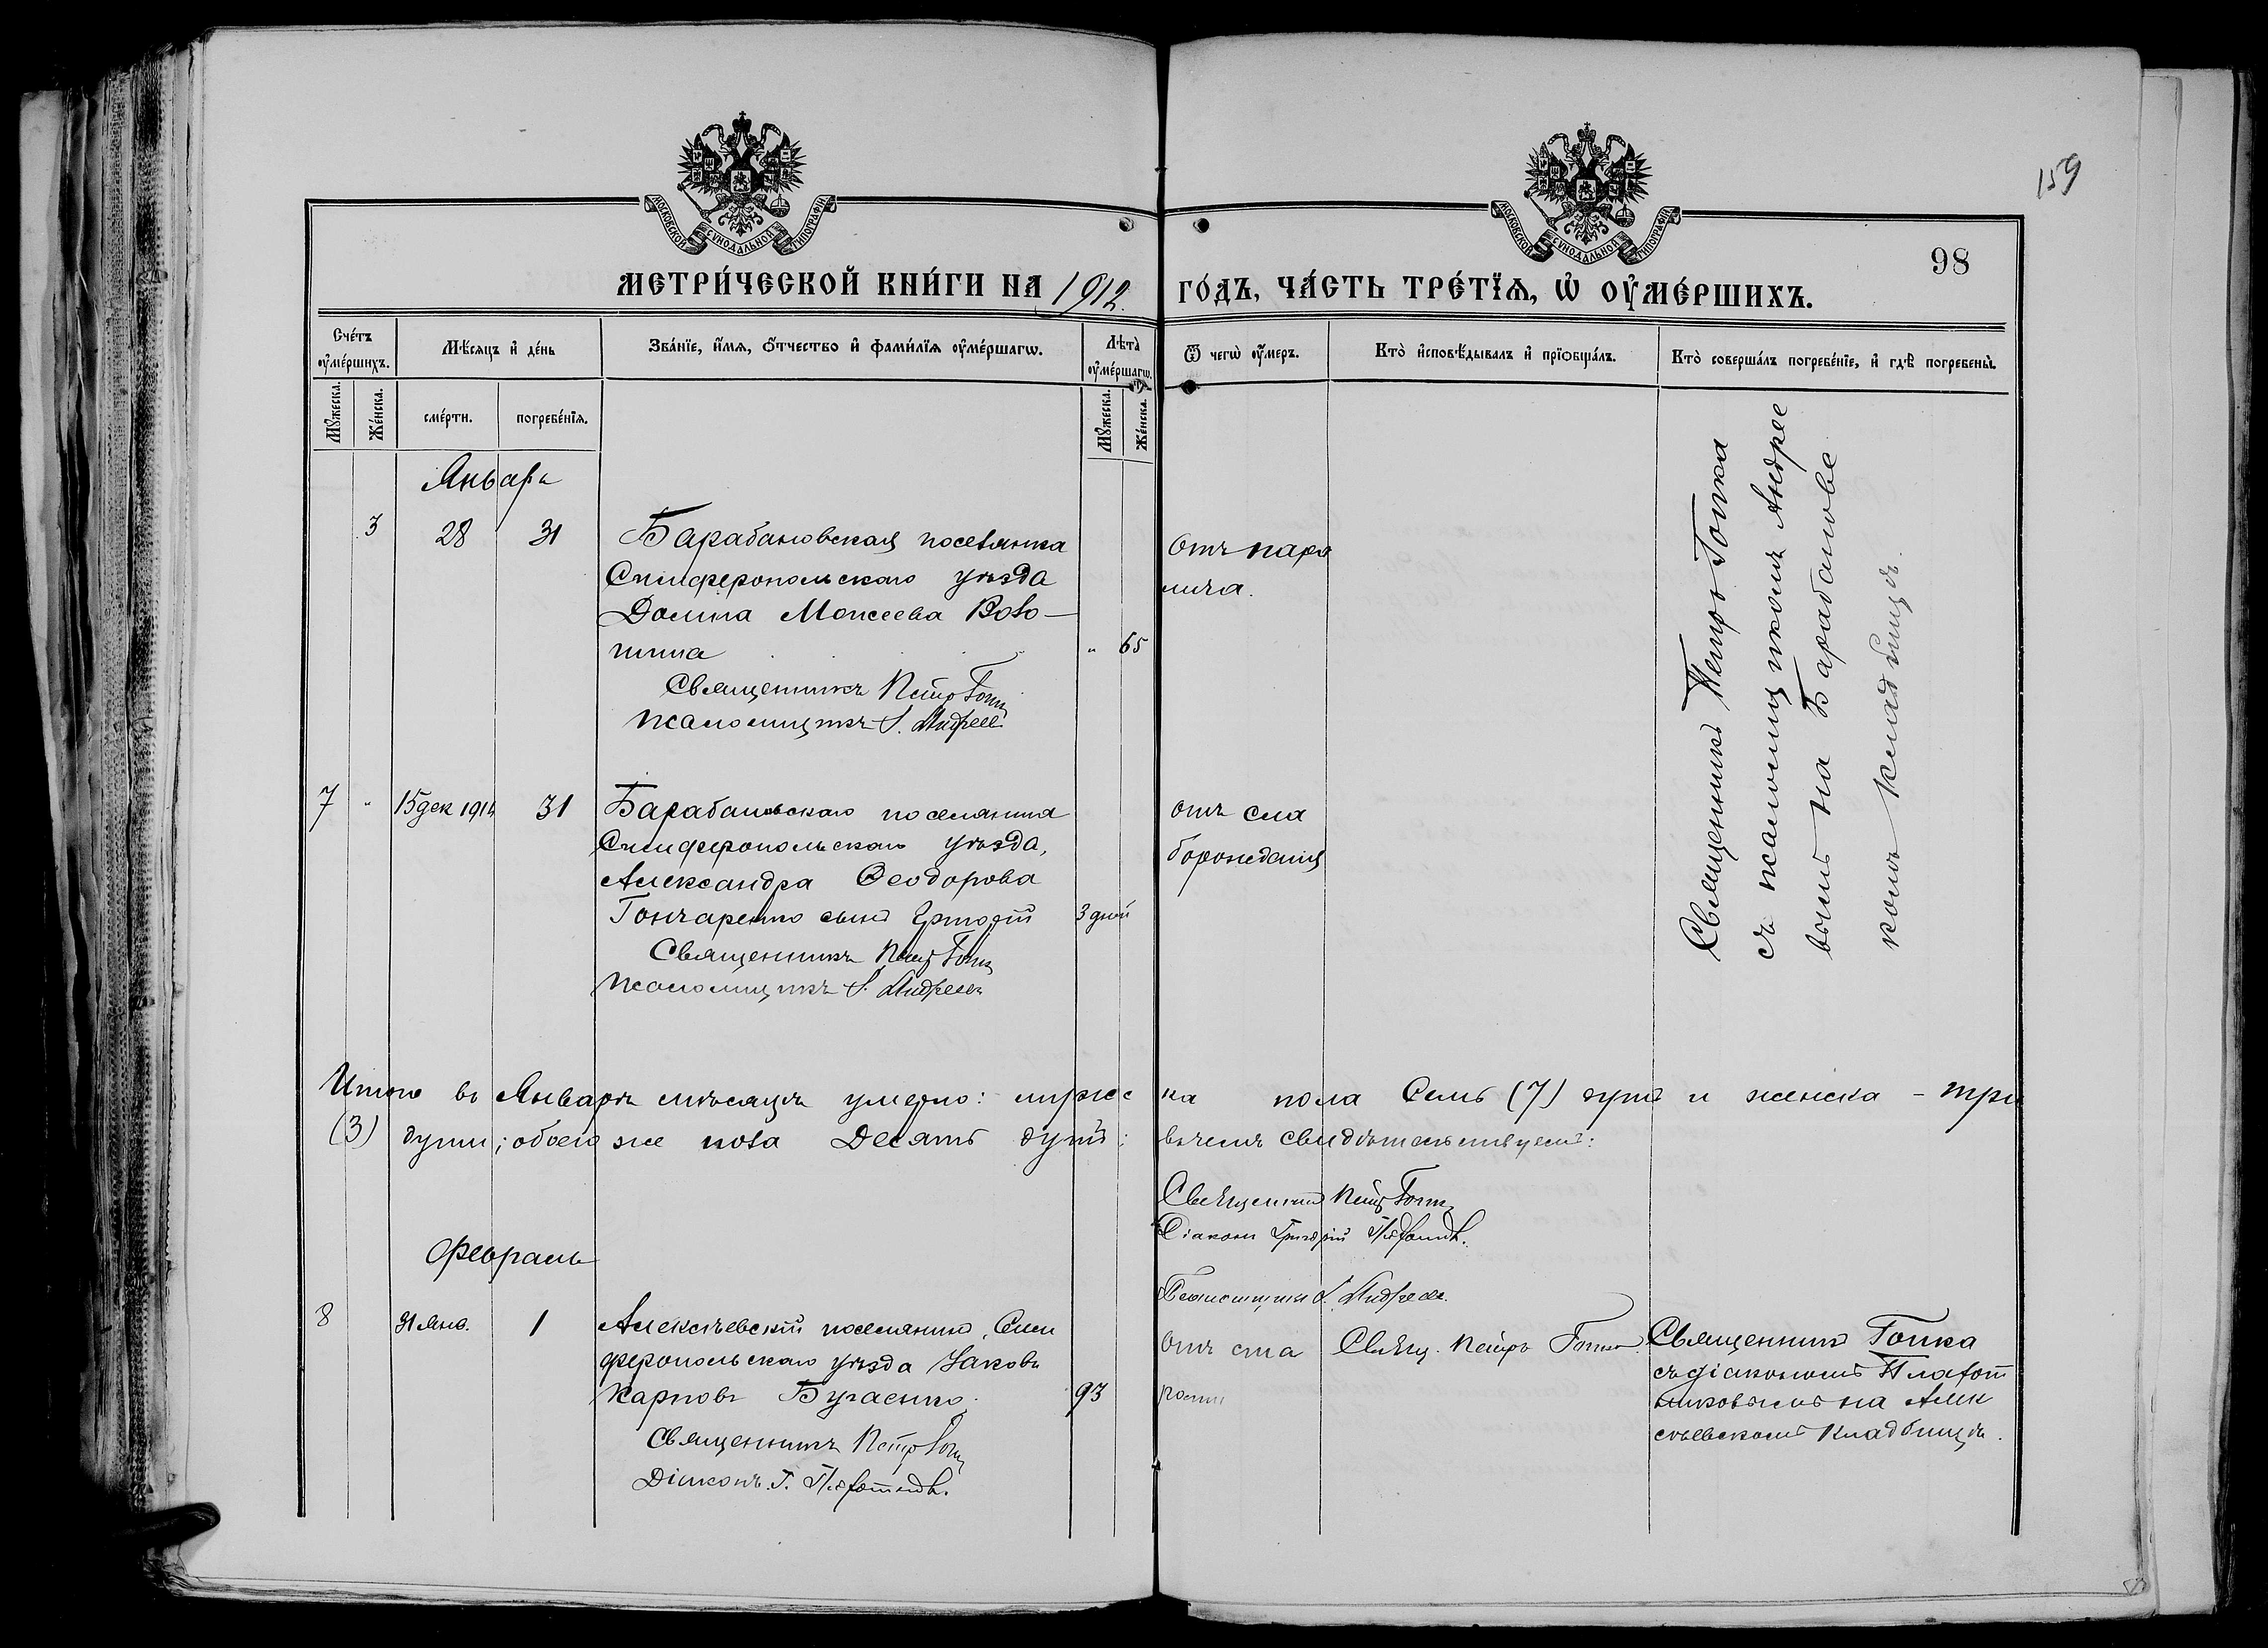 159
МОСКОВСКОЙ СѴНОДАЛЬНОЙ ТИПОГРАФІИ
МОСКОВСКОЙ СѴНОДАЛЬНОЙ ТИПОГРАФІИ
98
МЕТРИ́ЧЕСКОЙ КНИ́ГИ НА 1912. ГО́ДЪ, ЧА́СТЬ ТРЕ́ТЇѦ, Ѡ҆ ОУ҆МЕ́РШИХЪ.
Сче́тъ оу҆ме́ршихъ.
Мѣ́сяцъ и҆ де́нь
Зва́нїе, и҆́мя, ѻ҆́тчество и҆ фами́лїя оу҆ме́ршагѡ.
Лѣ́та оу҆ме́ршагѡ.
Ѿ чегѡ̀ оу҆́меръ.
Кто̀ и҆сповѣ́дывалъ и҆ прїѻбща́лъ.
Кто̀ соверша́лъ погребе́нїе, и҆ гдѣ̀ погребены̀.
Мꙋ́жеска.
Же́нска.
сме́рти.
погребе́нїя.
Мꙋ́жеска.
Же́нска.
Январь
3 28 31 Барабановская поселянка
Симферопольскаго уѣзда
Домна Моисеева Воло-
шина " 65
Священникъ Петръ Гопка
Псаломщикъ Андреев
отъ пара
лича.
Священникъ Петръ Гопка
съ псаломщикомъ Андрее
вымъ на Барабановс
комъ кладбищѣ.
7 " 15 дек 1911 31 Барабановскаго поселянина
Симферопольскаго уѣзда,
Александра Ѳеодорова
Гончаренко сынъ Григорій 3 дней
Священникъ Петръ Гопка
Псаломщикъ Андреевъ
отъ сла
борожденія
Итого въ Январѣ мѣсяцѣ умерло: мужес ка пола Семь (7) душъ и женска - три
(3) души; обоего же пола Десять душъ; въ чемъ свидѣтельствуемъ:
Священникъ Петръ Гопка
Діаконъ Григорій
Псаломщикъ Андреев.
Февраль
8 31 Янв. 1 Алексѣевскій поселянинъ, Сим
феропольскаго уѣзда Іаковъ
Карповъ Бугаенко 93
Священникъ Петръ Гопка
Діаконъ Г.
отъ ста
рости
Свящ. Петръ Гопка
Священникъ Гопка
съ діакономъ Платот
никовымъ на Алек
сѣевскомъ Кладбищѣ.